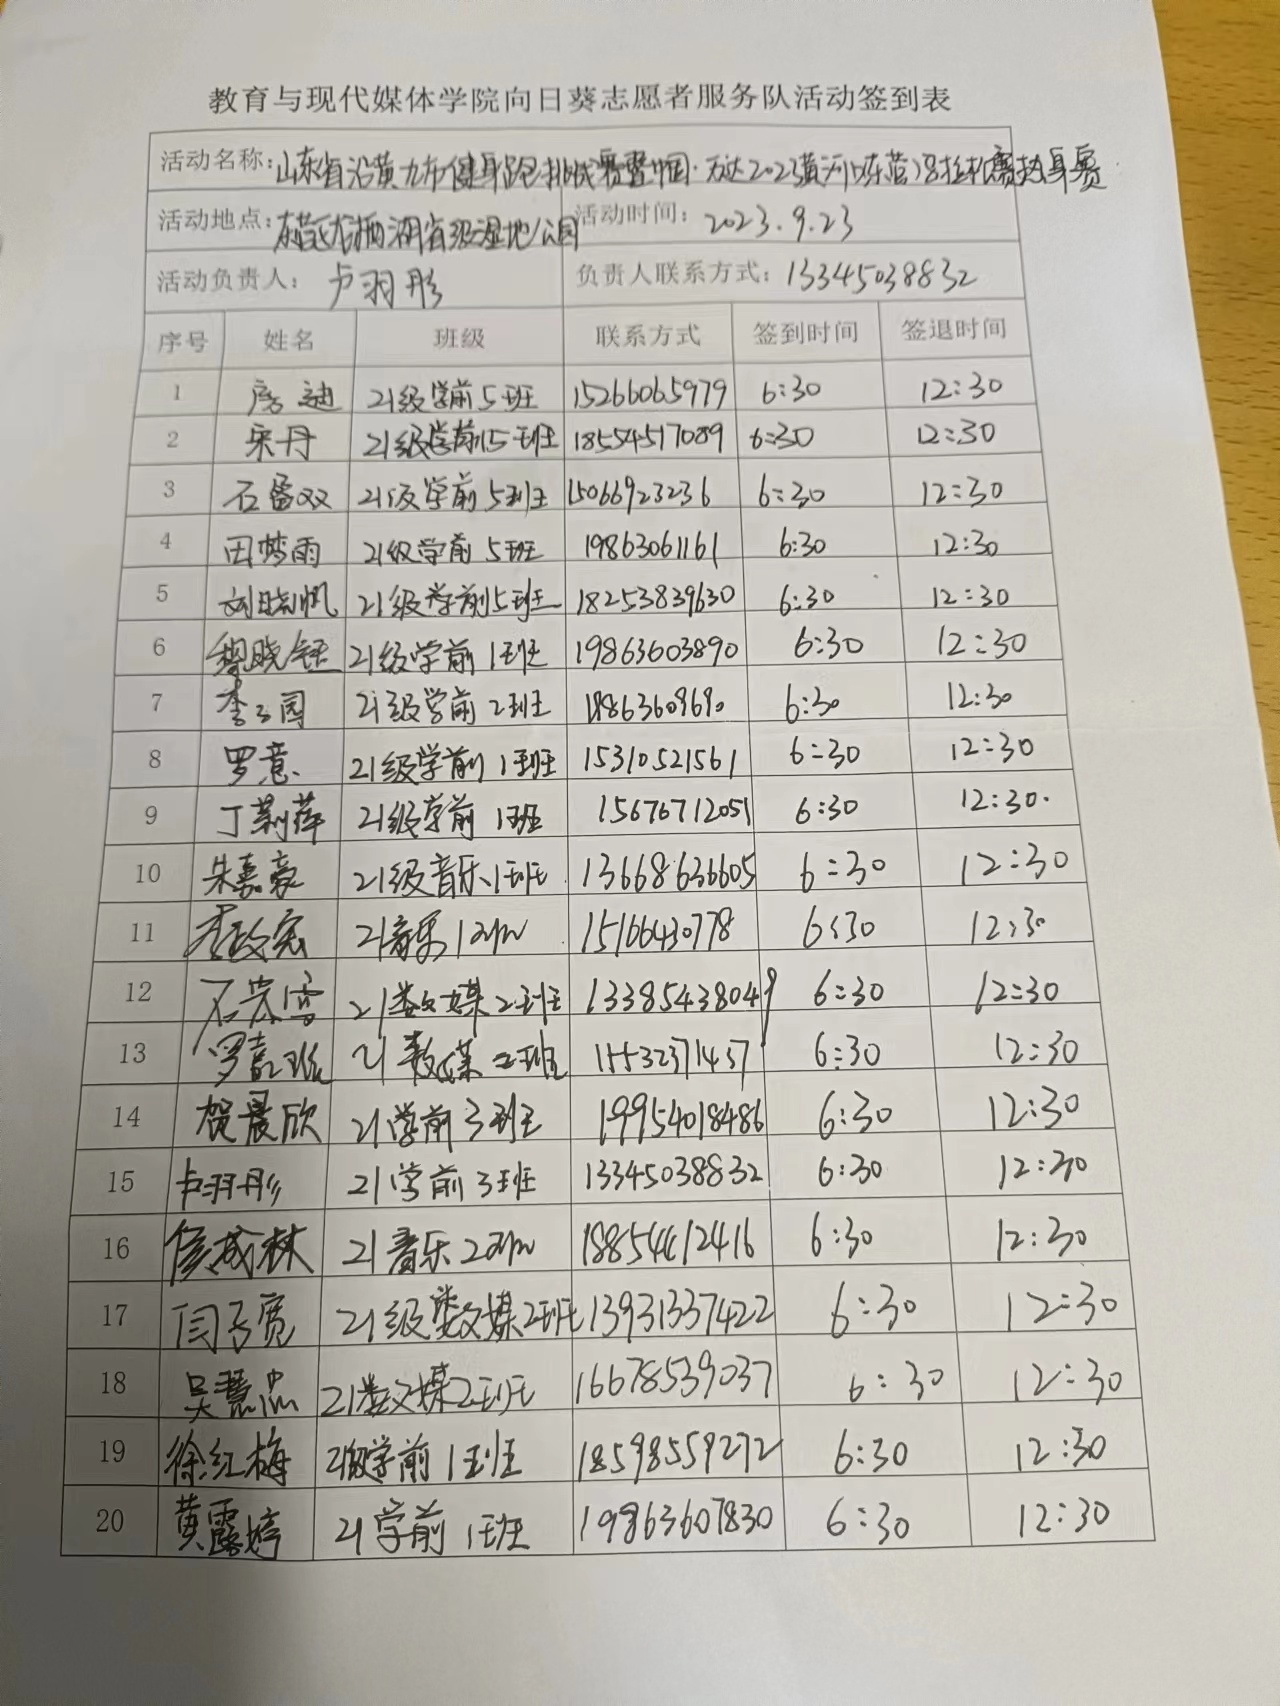 教育与现代媒体学院向日葵志愿者服务队活动签到表
活动名称：山东省沿黄九市健身跑挑战赛暨中国·万达2023黄河口(东营)马拉松赛热身赛
活动地点：东营龙栖湖省级湿地公园 活动时间：2023.9.23
活动负责人：卢羽彤 负责人联系方式：13345038832
序号 姓名 班级 联系方式 签到时间 签退时间
1 房迪 21级学前5班 15266065979 6:30 12:30
2 宋丹 21级学前5班 18554517089 6:30 12:30
3 石蕾双 21级学前5班 15066923236 6:30 12:30
4 田梦雨 21级学前5班 19863061161 6:30 12:30
5 刘晓帆 21级学前5班 18253839630 6:30 12:30
6 程晓钰 21级学前1班 19863603890 6:30 12:30
7 李子园 21级学前2班 18863609690 6:30 12:30
8 罗意 21级学前1班 15310521561 6:30 12:30
9 丁莉萍 21级学前1班 15676712051 6:30 12:30.
10 朱嘉豪 21级音乐1班 13668636605 6:30 12:30
11 李政宪 21音乐1班 15166430778 6:30 12:30
12 石荣雪 21数媒2班 13385438049 6:30 12:30
13 罗嘉 21数媒二班 15532371437 6:30 12:30
14 贺晨欣 21学前3班 19954018486 6:30 12:30
15 卢羽彤 21学前3班 13345038832 6:30 12:30
16 侯成林 21音乐2班 18854412416 6:30 12:30
17 闫子宽 21级数媒2班 13931337422 6:30 12:30
18 吴慧 21数媒2班 16678539037 6:30 12:30
19 徐红梅 21级学前1班 18598559272 6:30 12:30
20 黄露婷 21学前1班 19863607830 6:30 12:30